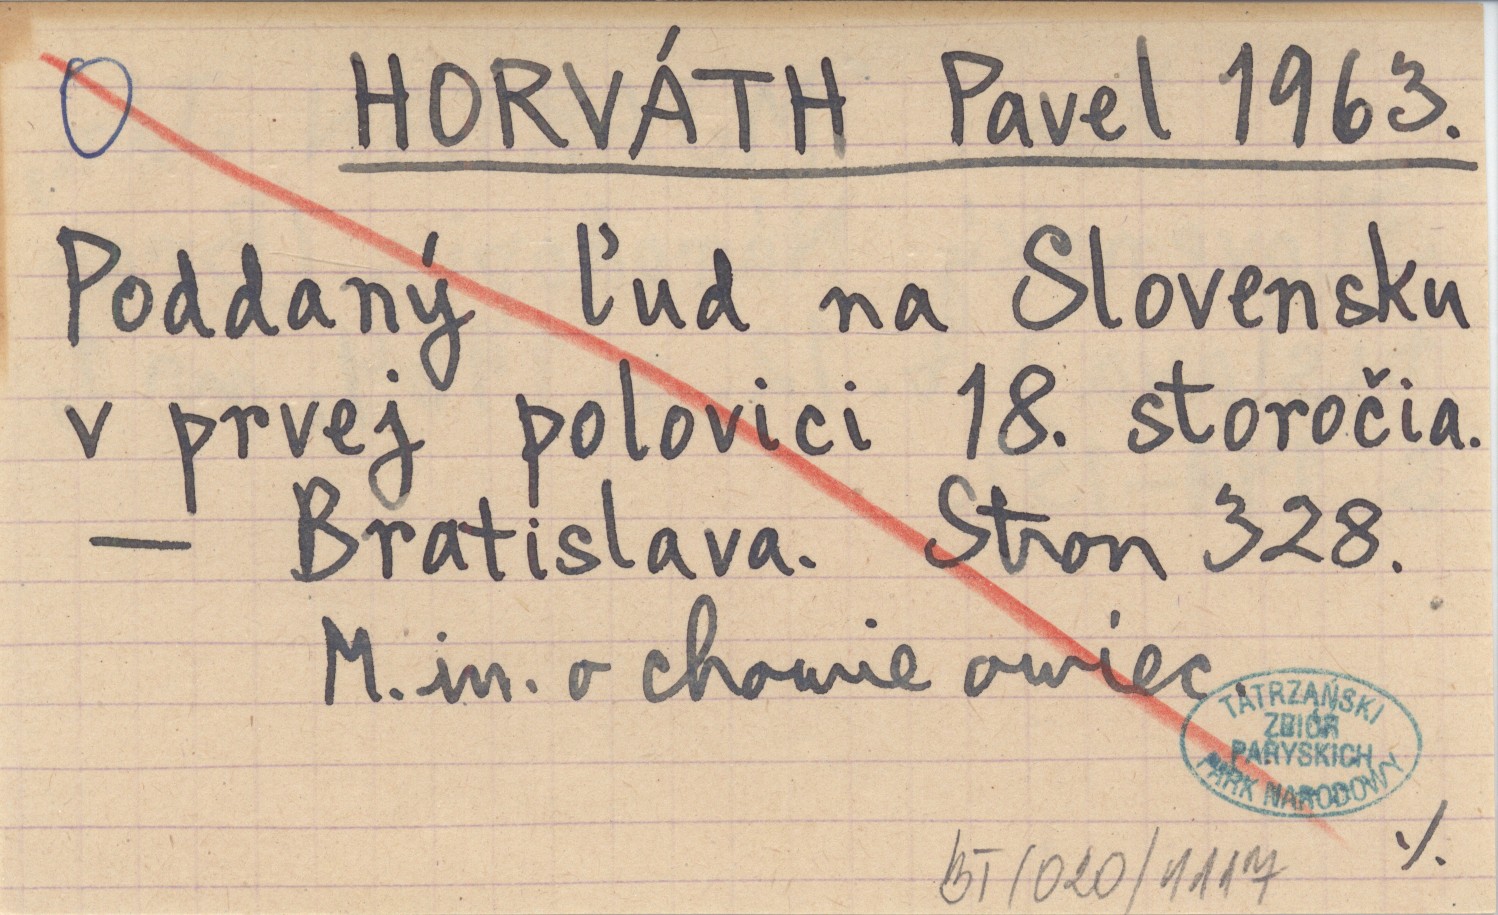 O HORVÁTH Pavel 1963.
Poddaný ľud na Slovensku
v prvej polovici 18. storočia.
— Bratislava. Stron 328.
M. in. o chowie owiec.
TATRZAŃSKI
ZBIÓR
PARYSKICH
PARK NARODOWY
·/.
BT/020/1117